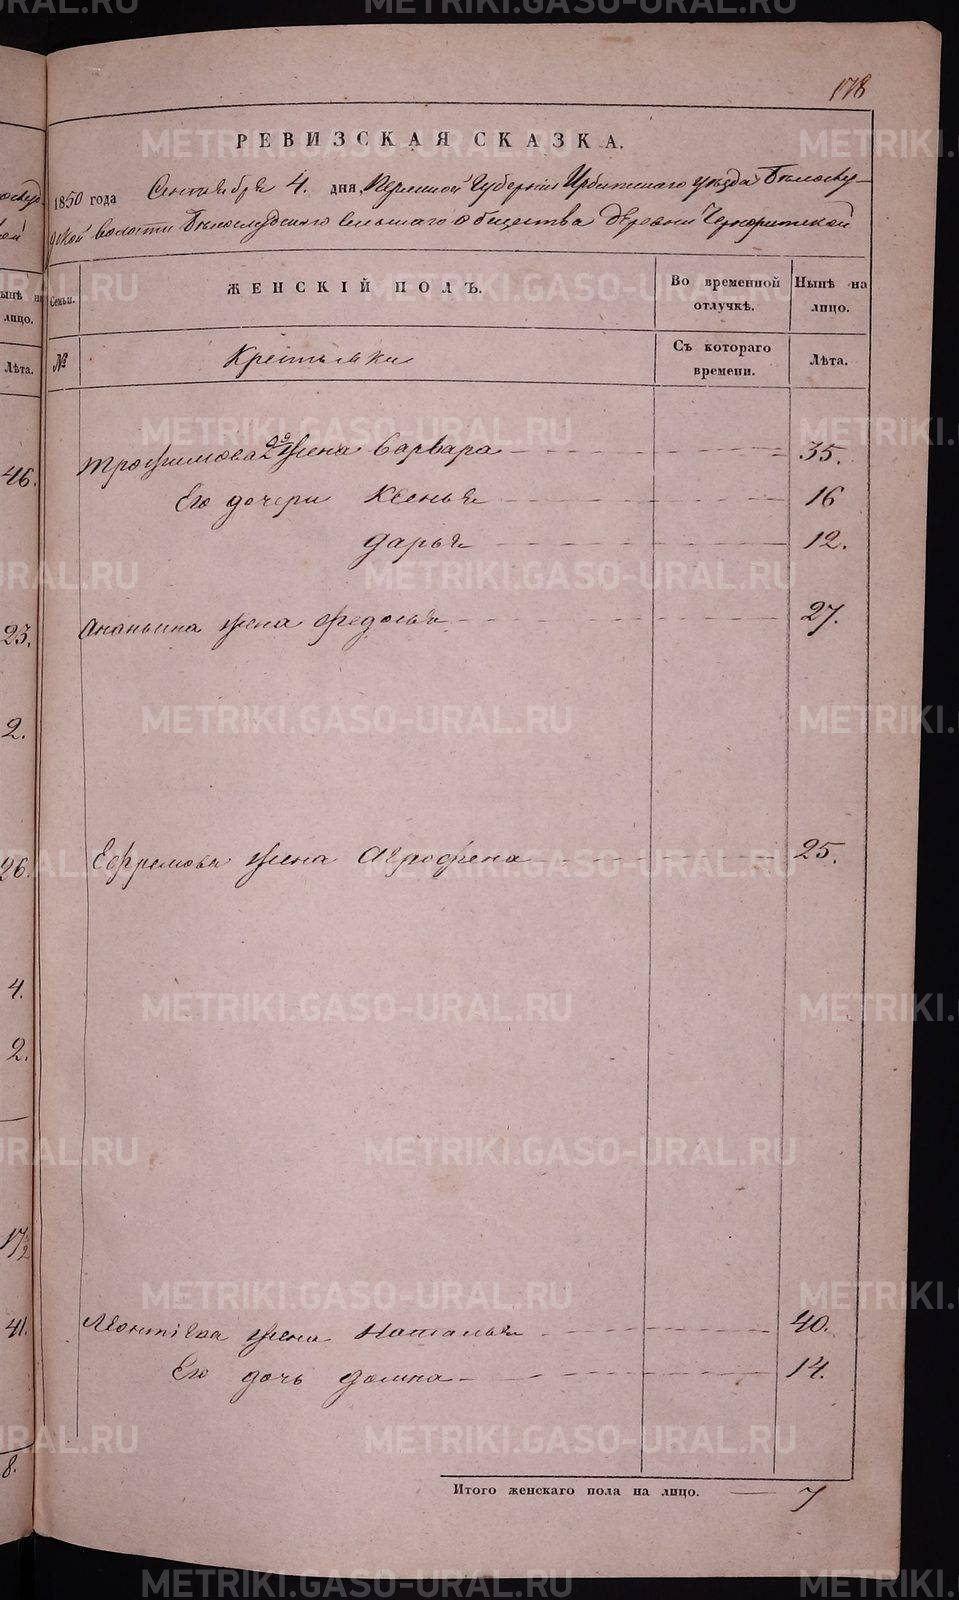 178
РЕВИЗСКАЯ СКАЗКА.
1850 года Сентября 4. дня, Пермской Губерніи Ирбитскаго уѣзда Бѣлослу-
дской волости Бѣлослудскаго сельскаго общества деревни
Семьи.
ЖЕНСКІЙ ПОЛЪ.
Во временной отлучкѣ.
Нынѣ на лицо.
№
Крестьянки
Съ котораго времени.
Лѣта.
Трофимова 2я жена Варвара 35.
Его дочери Ксенья 16
Дарья 12.
Ананьина жена Федосья 27.
Ефремова жена Агрофена 25.
Леонтіева жена Наталья 40.
Его дочь Домна 14.
Итого женскаго пола на лицо. 7
ынѣ на
лицо.
Лѣта.
46.
23.
2.
26.
4.
2.
17½
41.
8.
METRIKI.GASO-URAL.RU